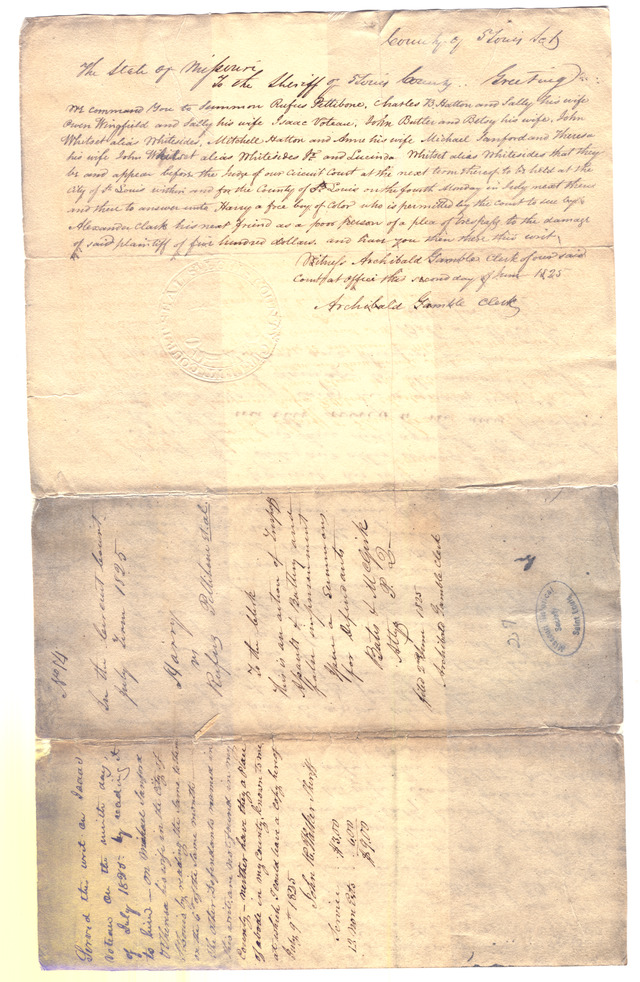 County of St Louis Sct
The State of Missouri
To the Sheriff of St Louis County.. Greeting
We command You to Summon Rufus Pettibone, Charles B Hatton and Sally his wife
Owen Wingfield and Sally his wife Isaac Voteau, John Butler and Betsy his wife, John
Whitset alias Whitesides, Mitchell Hatton and Anne his wife Michael Sanford and Theresa
his wife John Whitset alias Whitesides Jr and Lucinda Whitset alias Whitesides that they
be and appear before the Judge of our Circuit Court at the next term thereof to be held at the
City of St Louis within and for the County of St Louis on the fourth Monday in July next then
and there to answer unto Harry a free boy of Color who is permitted by the court to sue by
Alexander Clark his next friend as a poor person of a plea of trespass to the damage
of said plaintiff of five hundred dollars. and have you then there this writ
Witness Archibald Gamble Clerk of our said
Court at office this second day of June 1825
Archibald Gamble Clerk
No 14
In the Circuit Court
July Term 1825
Harry
vs
Rufus Pettibone et al.
To the Clerk
This is an action of Trespass
Assault & Battery and
False imprisonment
Issue a Summons
for Defendants
Bates & McGirk
Attys P. Q
filed 2d June 1825
Archibald Gamble Clerk
27
Missouri Historical
Society
Saint Louis
Served this writ on Isaac
Voteau on the ninth day
of July 1825 by reading it
to him - on Michael Sanford
& Theresa his wife in the City of
St Louis by reading the same to them
on the 6th of the same month
The other defendants named in
this writ are not found in my
County, neither have they a place
of abode in my County, known to me
at which I could leave a copy hereof
July 9th 1825
John K Walker Sheriff
Service $3.00
12 Non Ests 6.00
$9.00